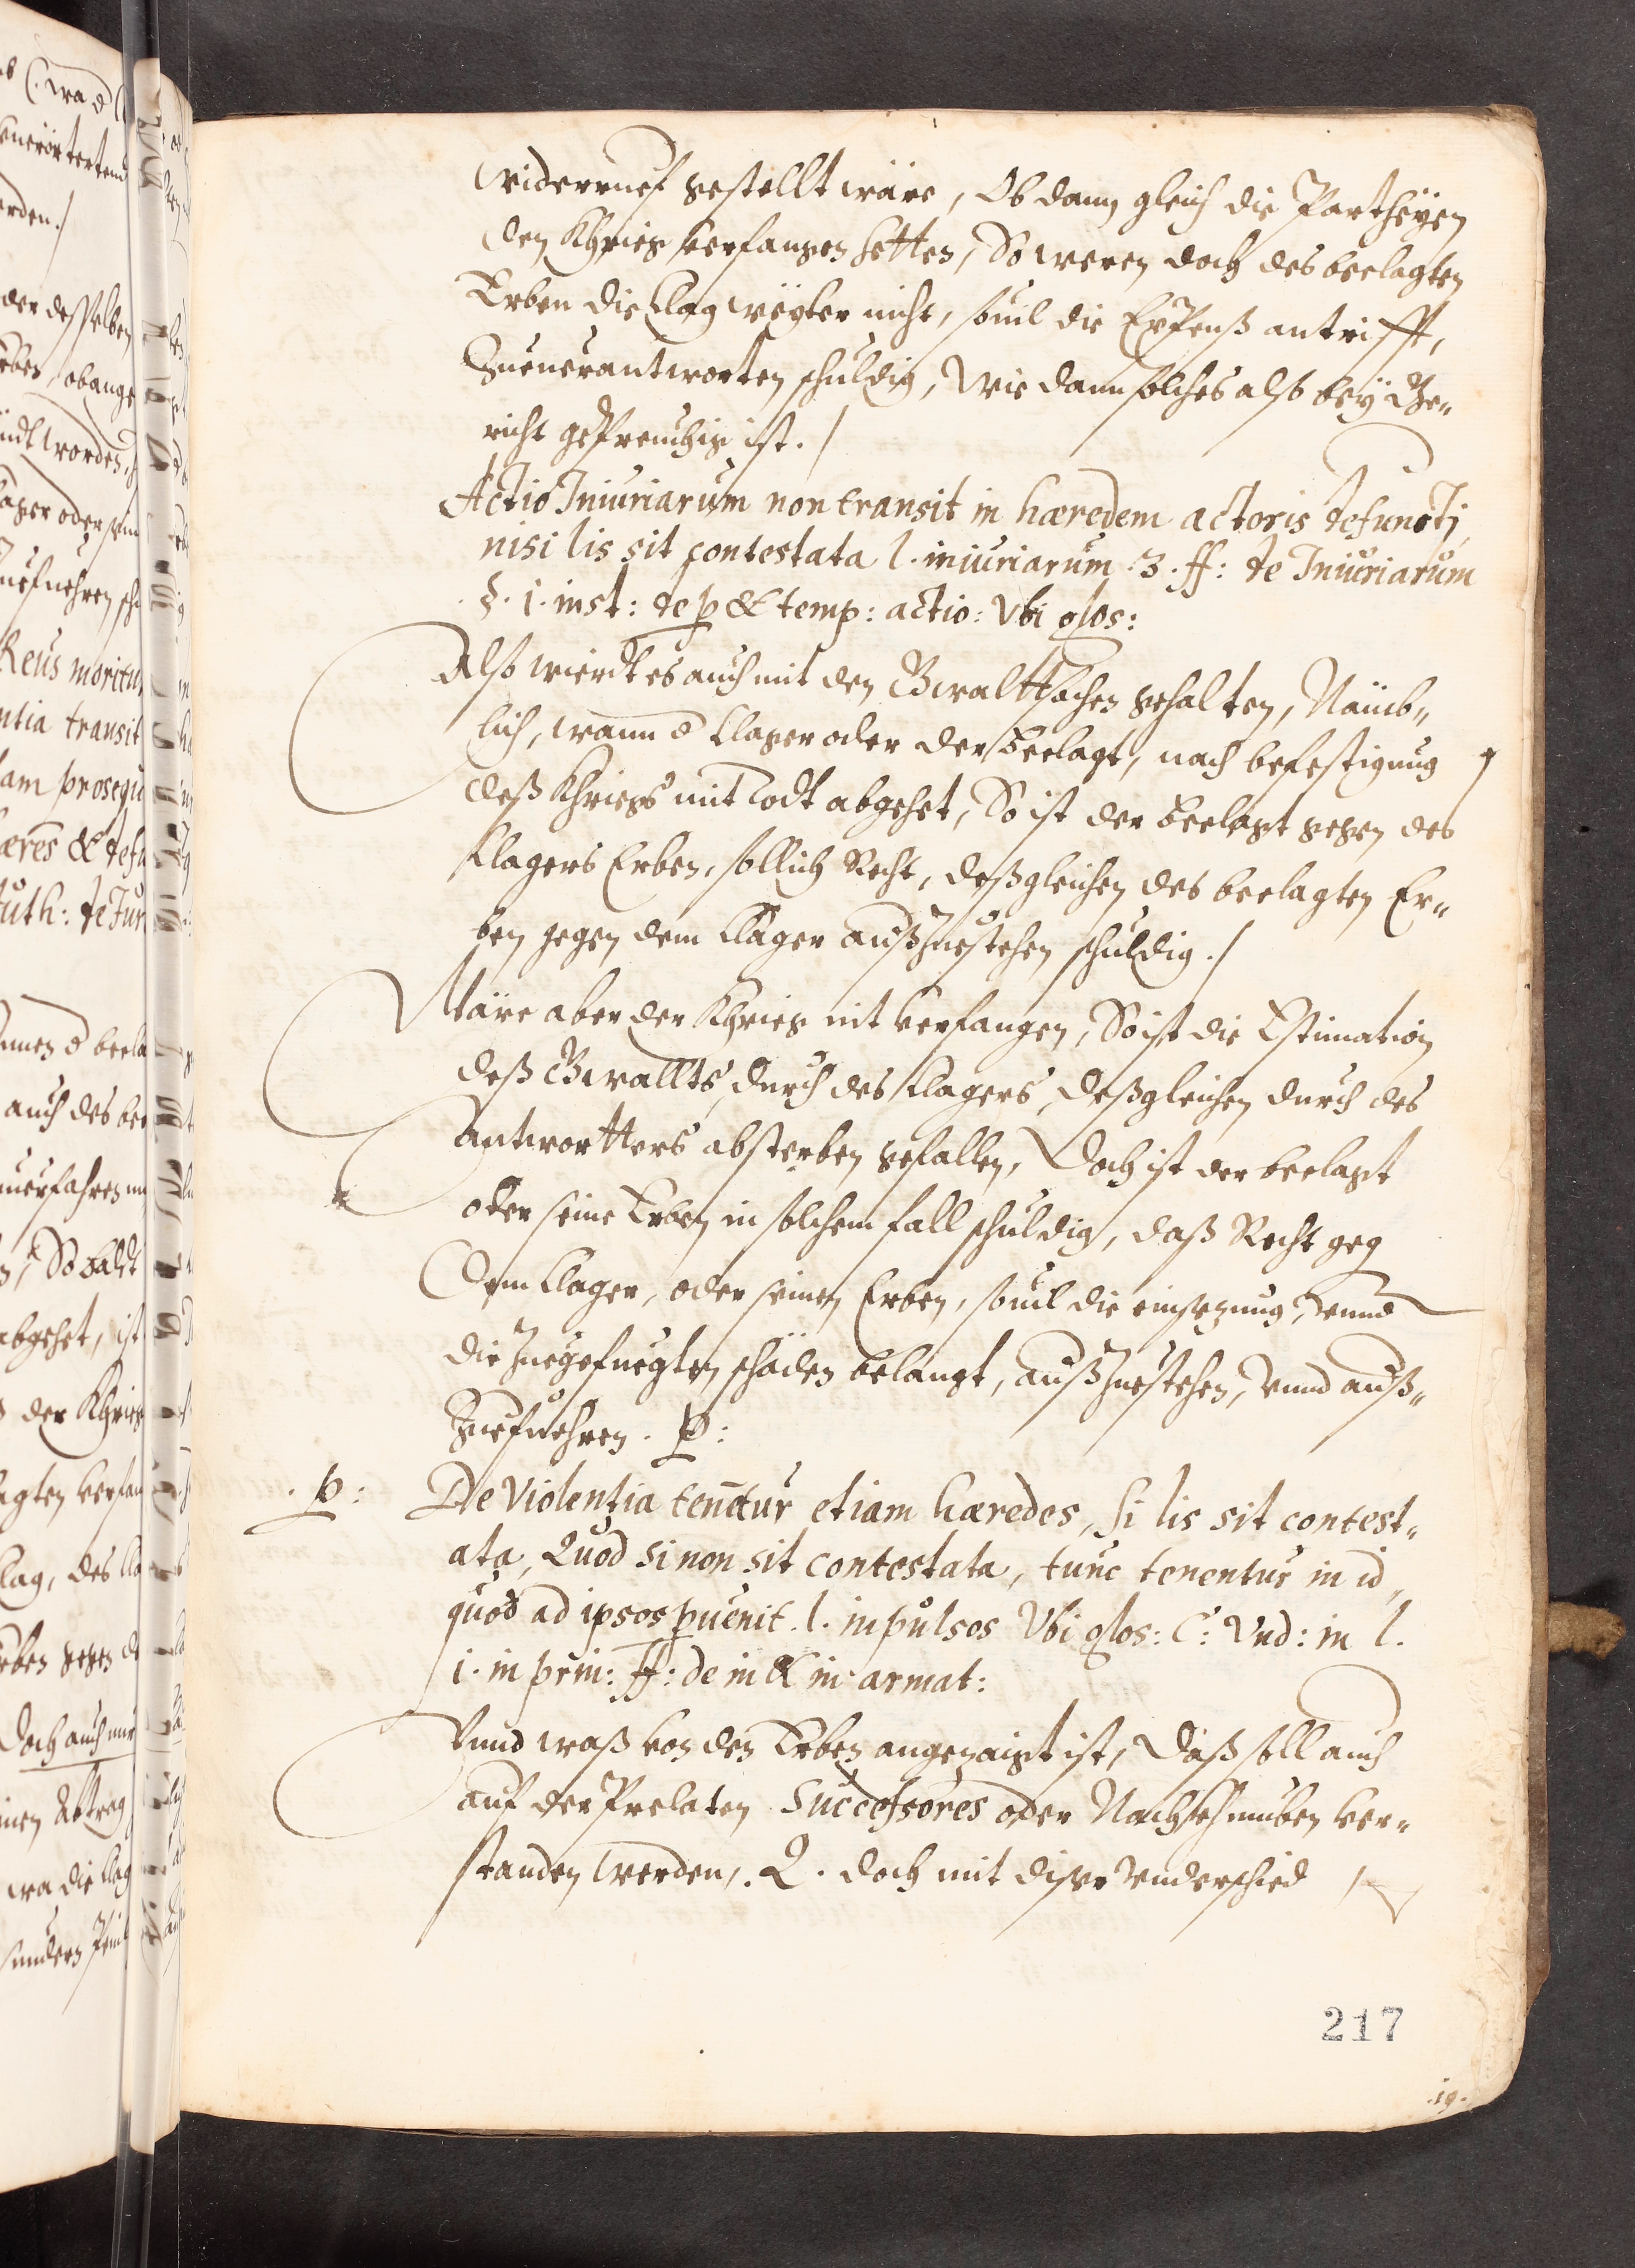 widerruef gestellt wäre, Ob dann gleich die Partheÿen
den Khrieg verfangen hetten, So weren doch des beclagten
Erben die Clag weÿter nicht, souil die Expenß antrifft,
Zuuerantworten schuldig, Wie dann solches also beÿ Ge„
richt gepreuchig ist./
Actio Iniuriarum non transit in hæredem actoris defuncti,
nisi lis sit contestata l. iniuriarum .3. ff: de Iniuriarum
§. 1. inst: de p & temp: actio: Vbi glos:
Also wierdt es auch mit den Gwalttsachen gehalten, Nämb„
lich, wann d Clager oder der beclagt, nach befestigung
deß Khriegs mit todt abgehet, So ist der beclagt gegen des
Clagers Erben, sollich Recht, deßgleichen des beclagten Er„
ben gegen dem Clager außzuestehen schuldig./
Wäre aber der Khrieg nit verfangen, So ist die Estimation
deß Gwallts, durch des Clagers, deßgleichen durch des
Antwortters absterben gefallen, Doch ist der beclagt
oder seine Erben in solchem fall schuldig, daß Recht geg
dem Clager, oder seinen Erben, souil die einsezung, vnnd
die zuegefuegten schäden belangt, außzuestehen, vnnd auß„
Zuefuehren. p:
.p: De Violentia tenētur etiam hæredes, si lis sit contest„
ata, Quod si non sit contestata, tunc tenentur in id,
quod ad ipsos puenit. l. inpulsos Vbi glos: C: Vnd: in l.
i. in prin: ff: de in & in armat:
Vnnd waß von den Erben angezaigt ist, Daß soll auch
auf der Prelaten Successores oder Nachkhumben ver„
standen werden,. Q. doch mit diser vnderschied
217
.19.